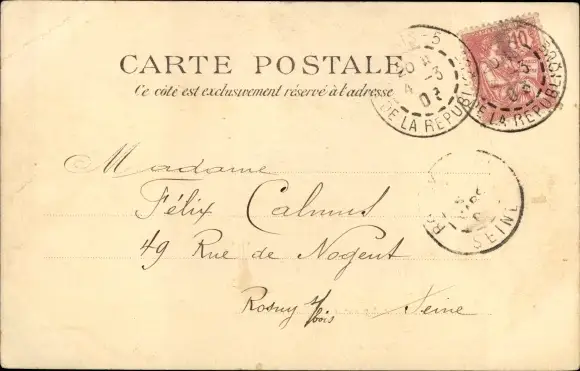 CARTE POSTALE
Ce côté est exclusivement réservé à l'adresse
10
PARIS-5
20
4-3
03
DE LA REPUBL
DE LA REPUBLI
Madame
Félix Calmus
49 Rue de Nogent
Rosny s/bois Seine
SEINE